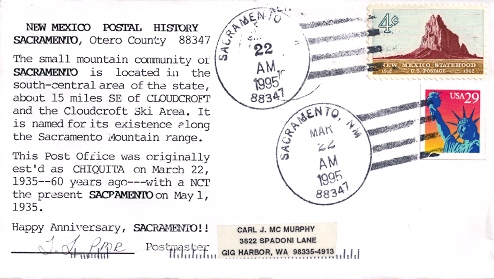 NEW MEXICO POSTAL HISTORY
SACRAMENTO, Otero County 88347
The small mountain community of
SACRAMENTO is located in the
south-central area of the state,
about 15 miles SE of CLOUDCROFT
and the Cloudcroft Ski Area. It
is named for its existence along
the Sacramento Mountain range.
This Post Office was originally
est'd as CHIQUITA on March 22,
1935--60 years ago---with a NCT
the present SACRAMENTO on May 1,
1935.
Happy Anniversary, SACRAMENTO!!
Postmaster
SACRAMENTO
22
AM
1995
88347
4¢
NEW MEXICO STATEHOOD
1912 U.S. POSTAGE 1962
USA 29
SACRAMENTO, NM
MAR
22
AM
1995
88347
CARL J. MC MURPHY
3622 SPADONI LANE
GIG HARBOR, WA 98335-4913